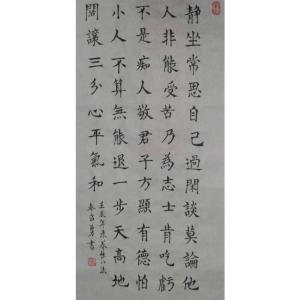 静坐常思自己過閑談莫論他
人非能受苦乃為志士肯吃虧
不是痴人敬君子方顯有德怕
小人不算無能退一步天高地
闊讓三分心平氣和
壬辰年
書